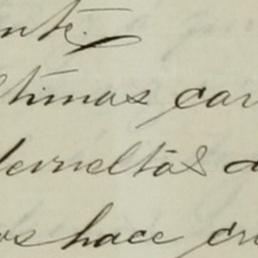 nte.
ltimas car
devueltas d
os hace cr